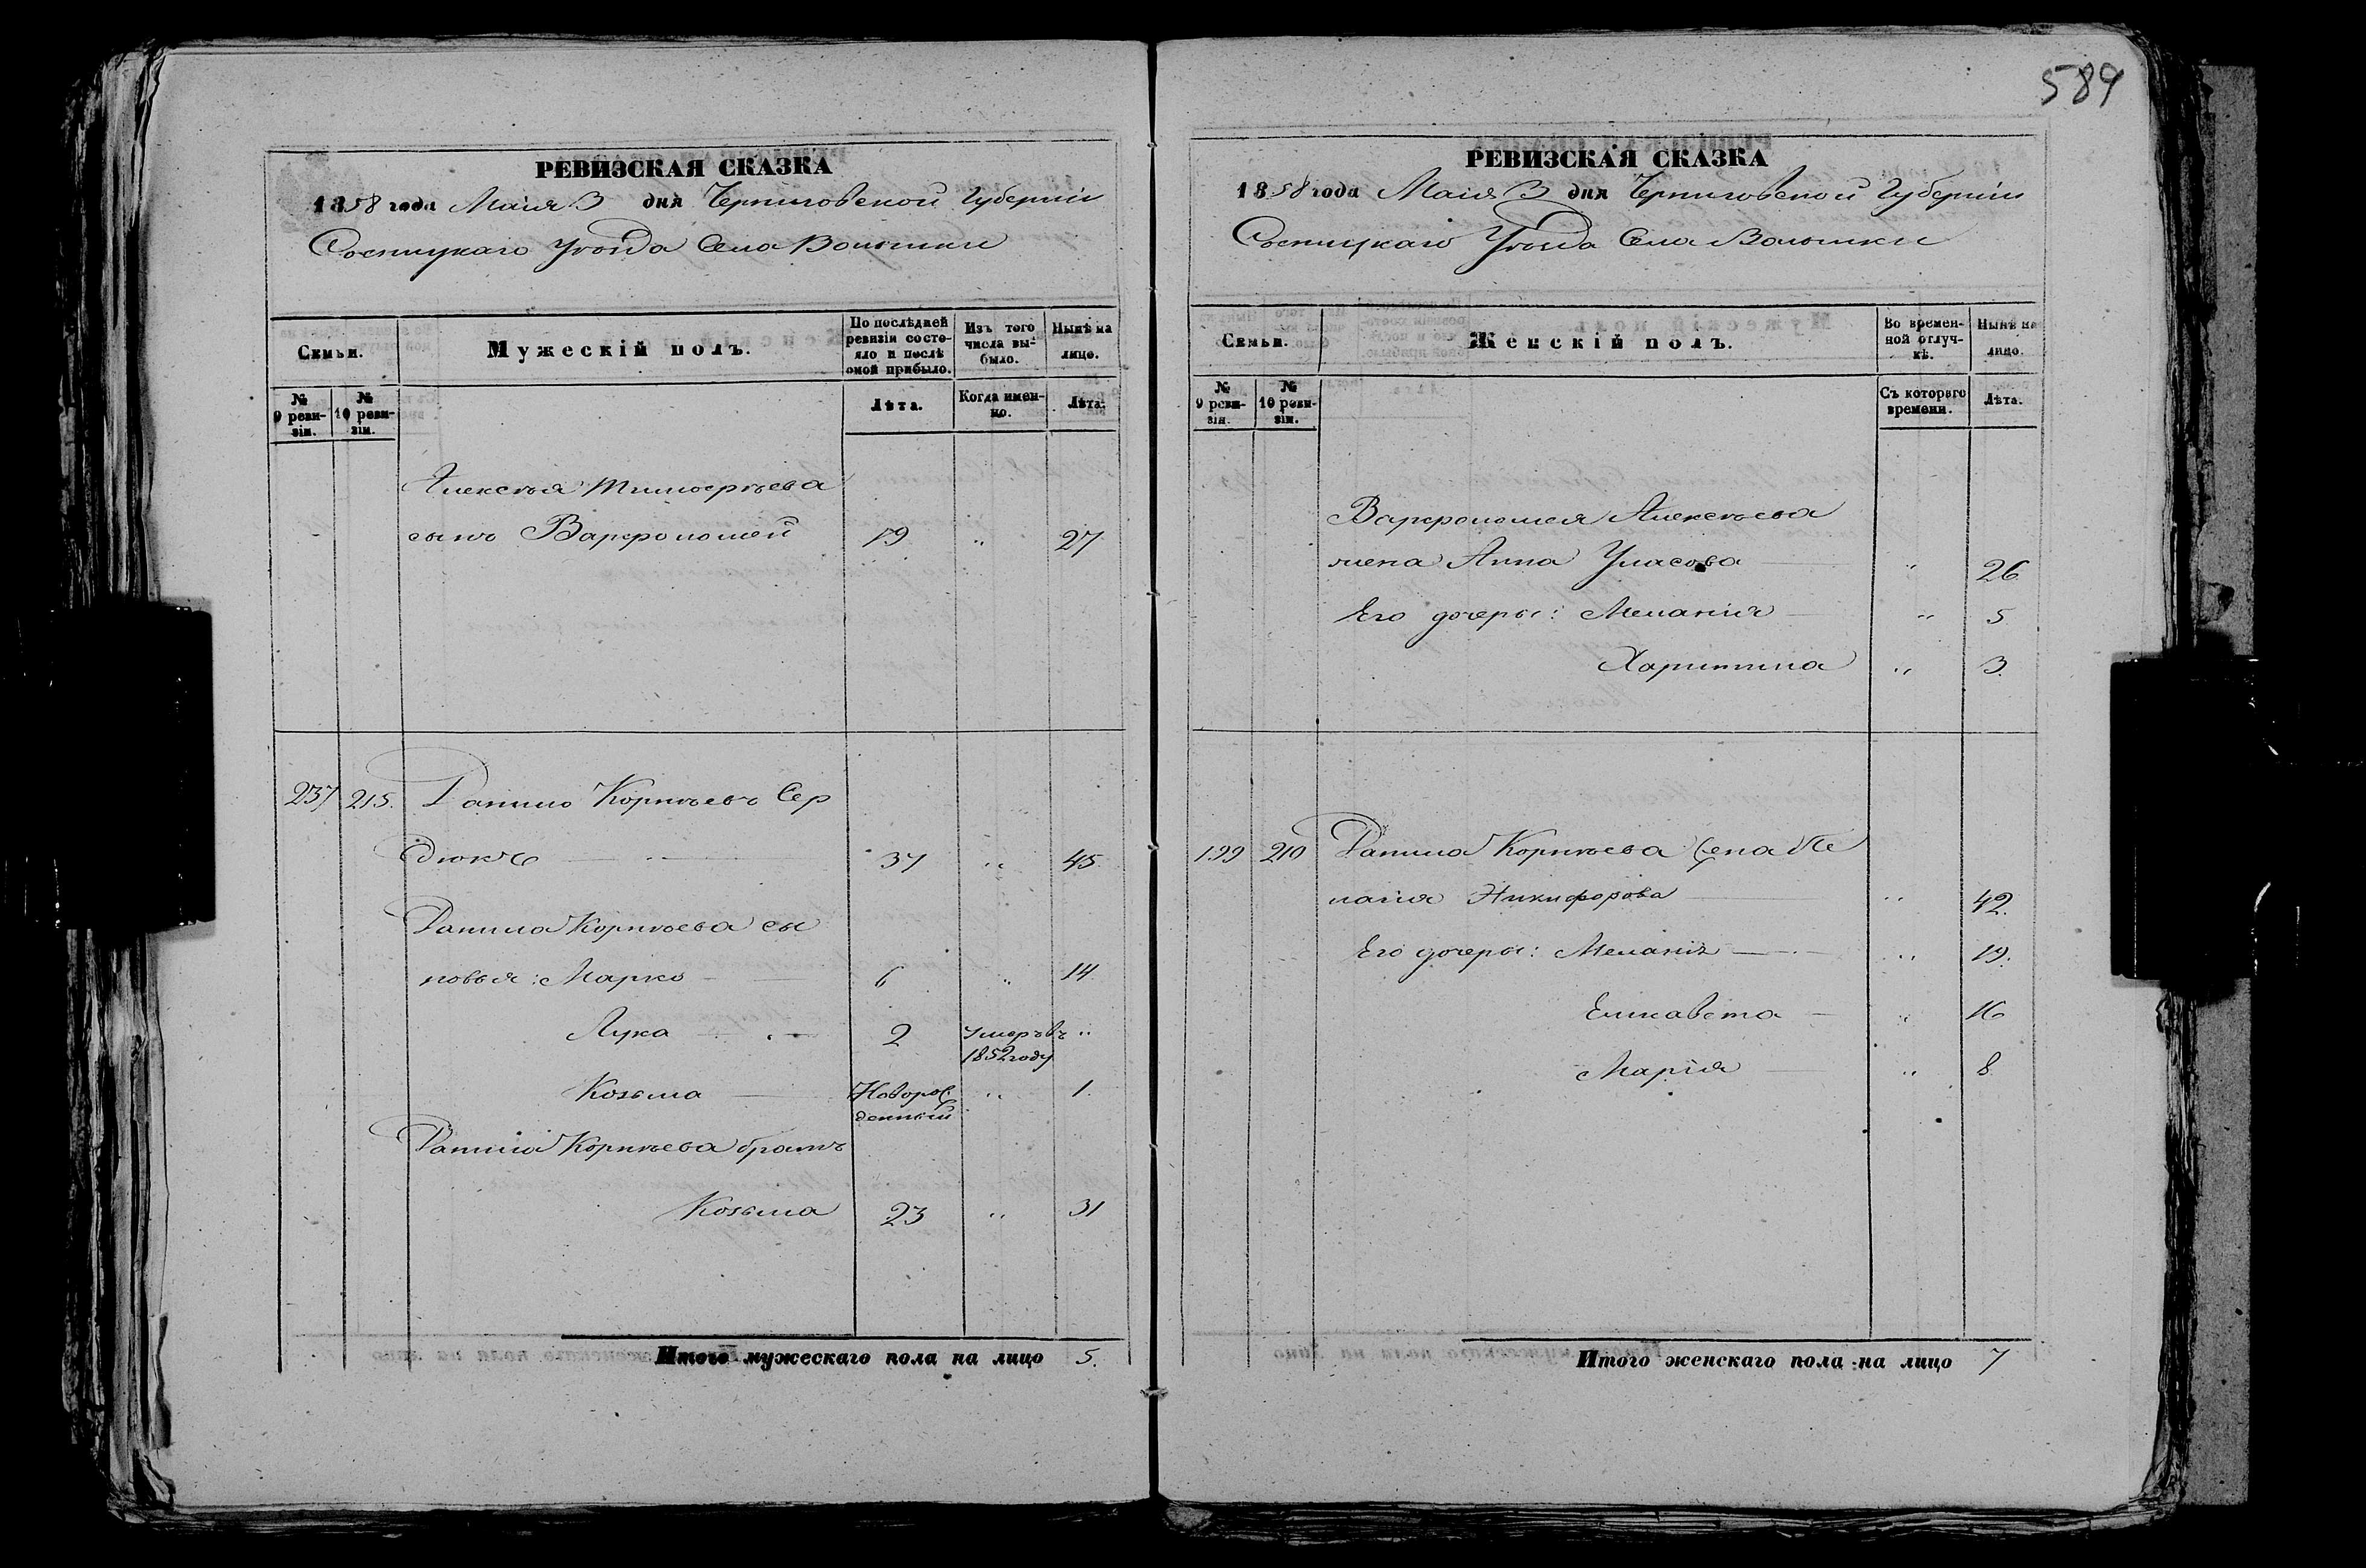 589
РЕВИЗСКАЯ СКАЗКА
1858 года Маія 3 дня Черниговской Губерніи
Сосницкаго Уѣзда Села Волынки
Семьи.
Мужескій полъ.
По послѣдней ревизіи состояло и послѣ оной прибыло.
Изъ того числа выбыло.
Нынѣ на лицо.
№ 9 ревизіи.
№ 10 ревизіи.
Лѣта.
Когда именно.
Лѣта.
Алексѣя Тимофѣева
сынъ Варфоломей 19 „ 27
237 215. Данило Корнѣевъ Сер
дюкъ 37 „ 45
Данила Корнѣева сы
новья: Марко 6 „ 14
Лука 2 Умеръ въ „
1852 году
Козьма Новорож „ 1
денный
Данила Корнѣева братъ
Козьма 23 „ 31
Итого мужескаго пола на лицо 5.
РЕВИЗСКАЯ СКАЗКА
1858 года Маія 3 дня Черниговской Губерніи
Сосницкаго Уѣзда Села Волынки
Семьи.
Женскій полъ.
Во временной отлучкѣ.
Нынѣ на лицо.
№ 9 ревизіи.
№ 10 ревизіи.
Съ котораго времени.
Лѣта.
Варфоломея Алексѣева
жена Анна Уласова „ 26
Его дочеры: Меланія „ 5
Харитина „ 3
199 210 Данила Корнѣева жена Пе
лагія Никифорова „ 42.
Его дочеры: Меланія „ 19.
Елисавета „ 16
Марія „ 8
Итого женскаго пола на лицо 7